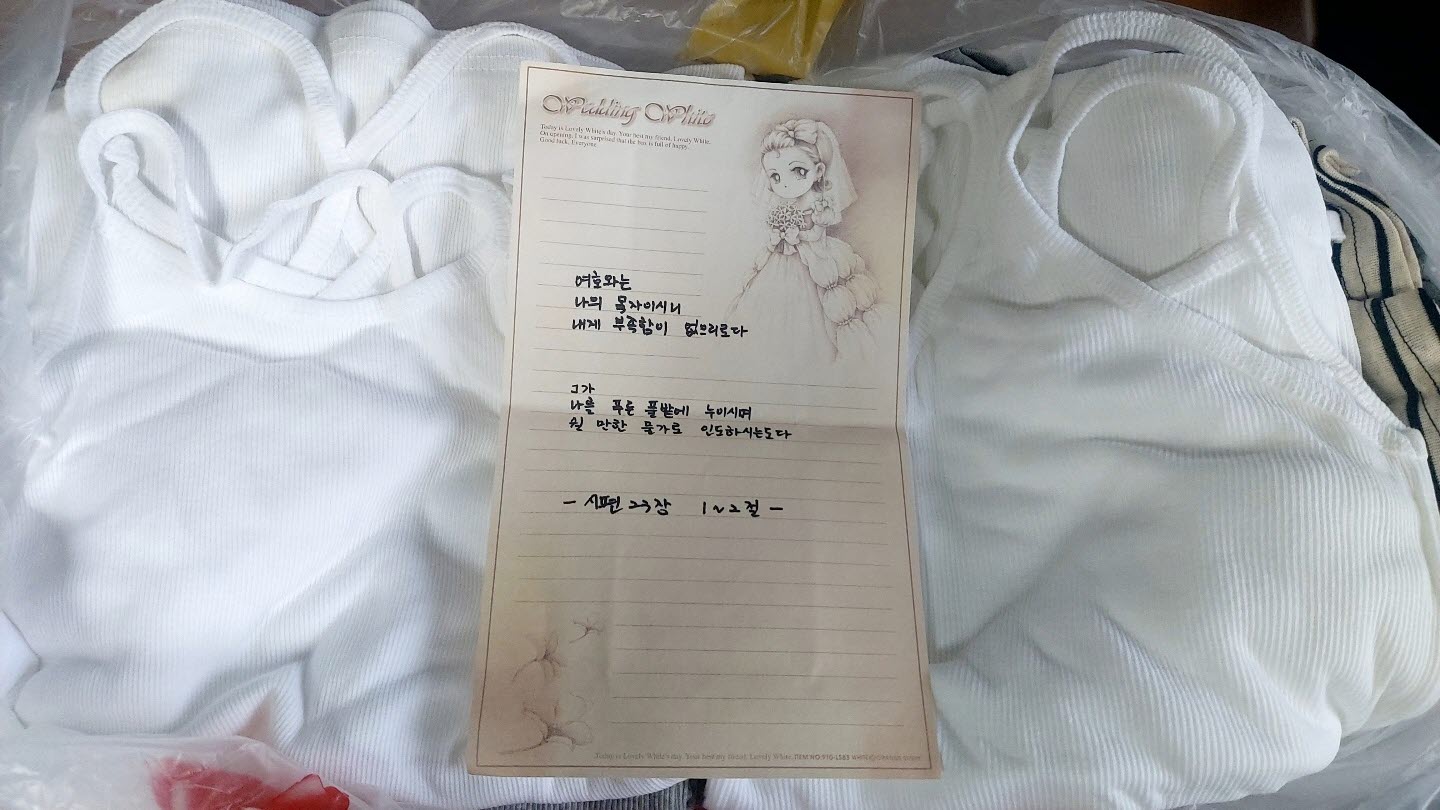 Wedding White
Today is Lovely White's day. Your best my friend, Lovely White.
On opening, I was surprised that the box is full of happy.
Good luck, Everyone.
여호와는
나의 목자이시니
내게 부족함이 없으리로다
그가
나를 푸른 풀밭에 누이시며
쉴 만한 물가로 인도하시는도다
- 시편 23장 1~2절 -
Today is Lovely White's day. Your best my friend, Lovely White. ITEM NO.970-L583